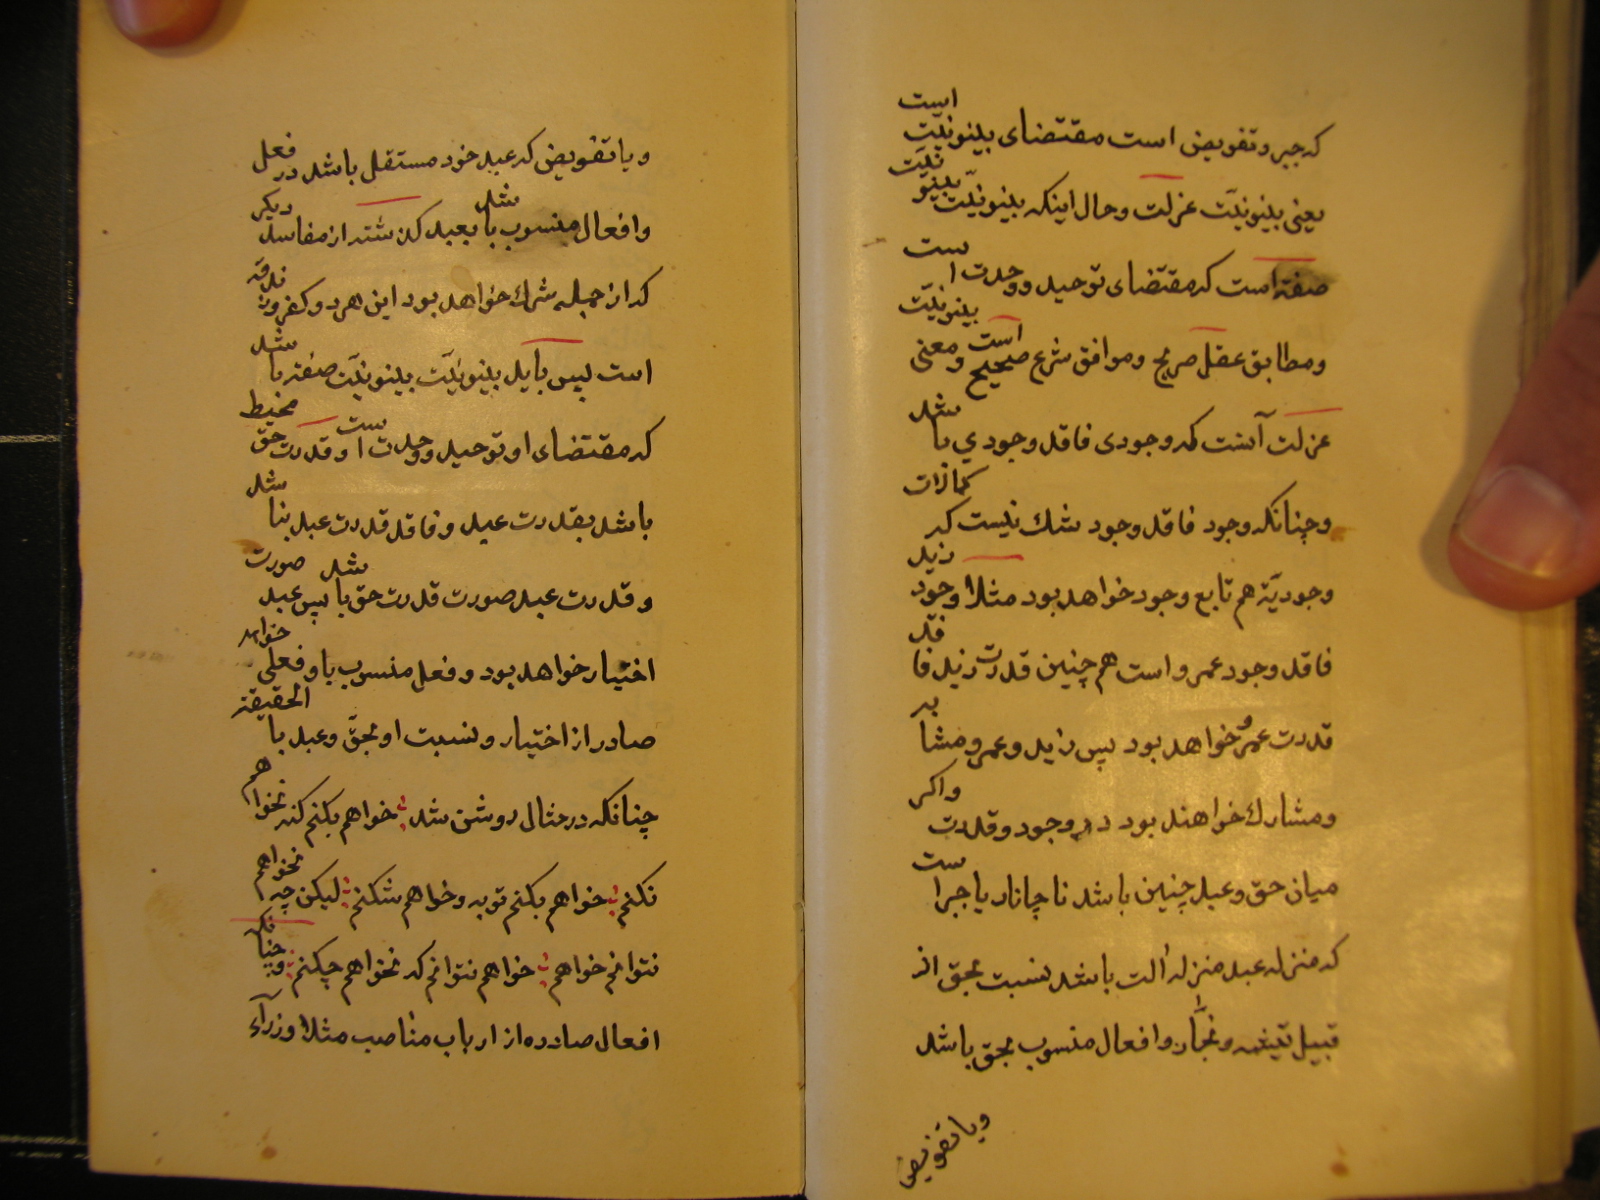 که جبر و تفویض است مقتضای بینونیّت است
یعنی بینونیّت عزلت و حال اینکه بینونیّت بینونیّت
صفة است که مقتضای توحید و وحدت است
و مطابق عقل صریح و موافق شرع صحیح است و معنی بینونیّت
عزلت آنست که وجودی فاقد وجودی باشد
و چنانکه وجود فاقد وجود شك نیست که کمالات
وجودیّه هم تابع وجود خواهد بود مثلا وجود زید
فاقد وجود عمرو است هم چنین قدرت زید فاقد
قدرت عمرو خواهد بود پس زید و عمرو مشابه
و مشارك خواهند بود در وجود و قدرت و اکر
میان حق و عبد چنین باشد ناچار یا جبر است
که منزله عبد منزله آلت باشد نسبت بحق از
قبیل تیشه و نجّار و افعال منسوب بحق باشد
و یا تفویض
و یا تفویض که عبد خود مستقل باشد در فعل
و افعال منسوب بعبد باشد کذشته از مفاسد دیکر
که از جمله شرك خواهد بود این هر دو کفر و زندقه
است پس باید بینونیّت بینونیّت صفة باشد
که مقتضای او توحید و وحدت است و قدرت حق محیط
باشد بقدرت عبد و فاقد قدرت عبد نباشد
و قدرت عبد صورت قدرت حق باشد پس عبد صورت
اختیار خواهد بود و فعل منسوب باو فعلی خواهد
صادر از اختیار و نسبت او بحقّ و عبد بالحقیقة
چنانکه در مثال روشن شد خواهم بکنم کنه نخواهم
نکنم خواهم بکنم توبه و خواهم شکنم لیکن چه نخواهم
نتوانم خواهم خواهم نتوانم که نخواهم چکنم و چنانکه
افعال صادره از ارباب مناصب مثلا وزرآء